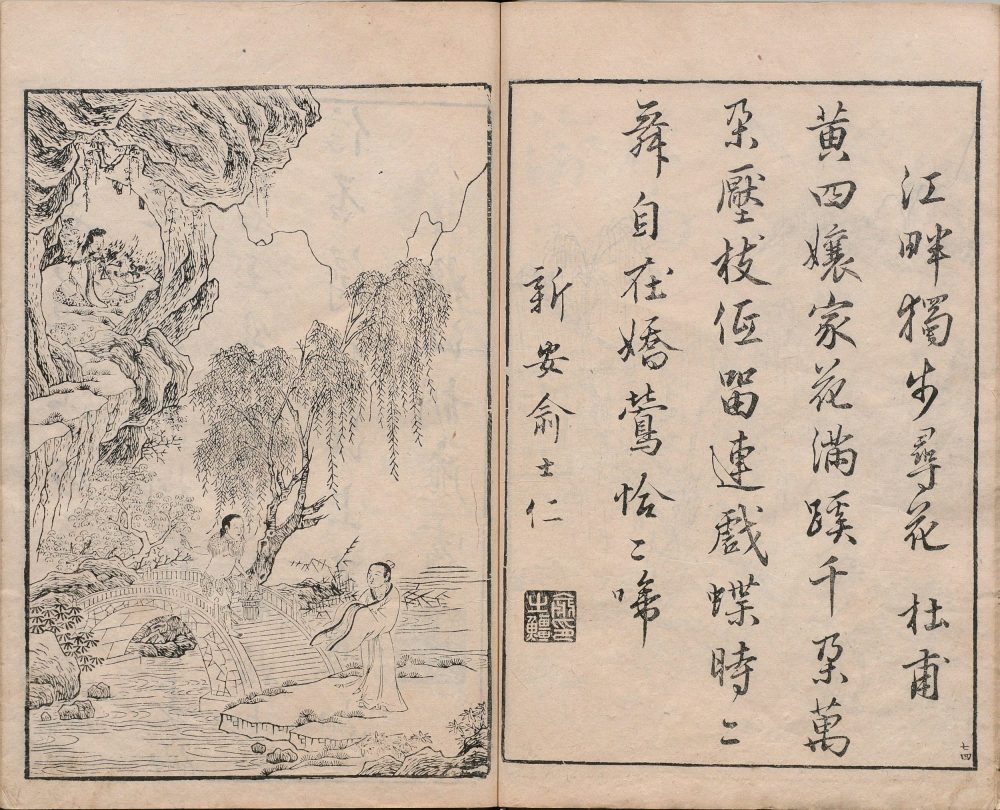 江畔獨步尋花 杜甫
黄四孃家花滿蹊千朶萬
朶壓枝低留連戲蝶時〻
舞自在嬌鶯恰〻啼
新安俞士仁
七四